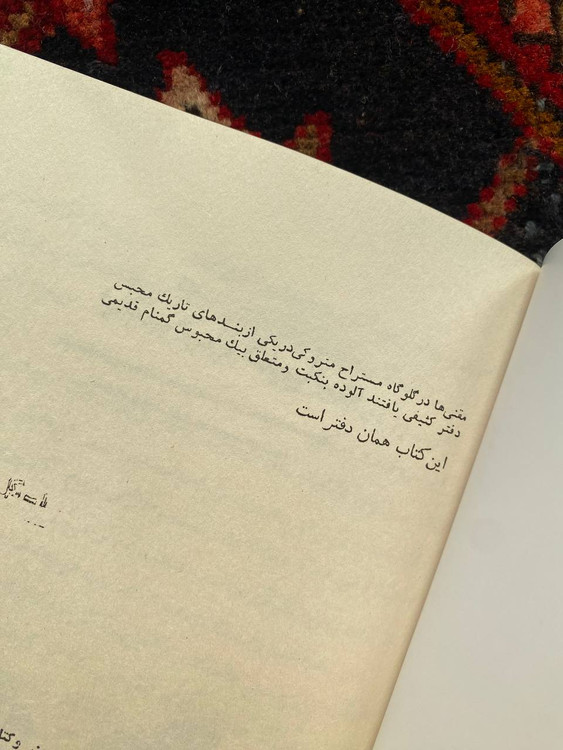 مقنی‌ها درگلوگاه مستراح متروکی‌دریکی ازبندهای تاریك محبس
دفتر کثیفی یافتند آلوده بنکبت ومتعلق بیك محبوس گمنام قدیمی
این کتاب همان دفتر است